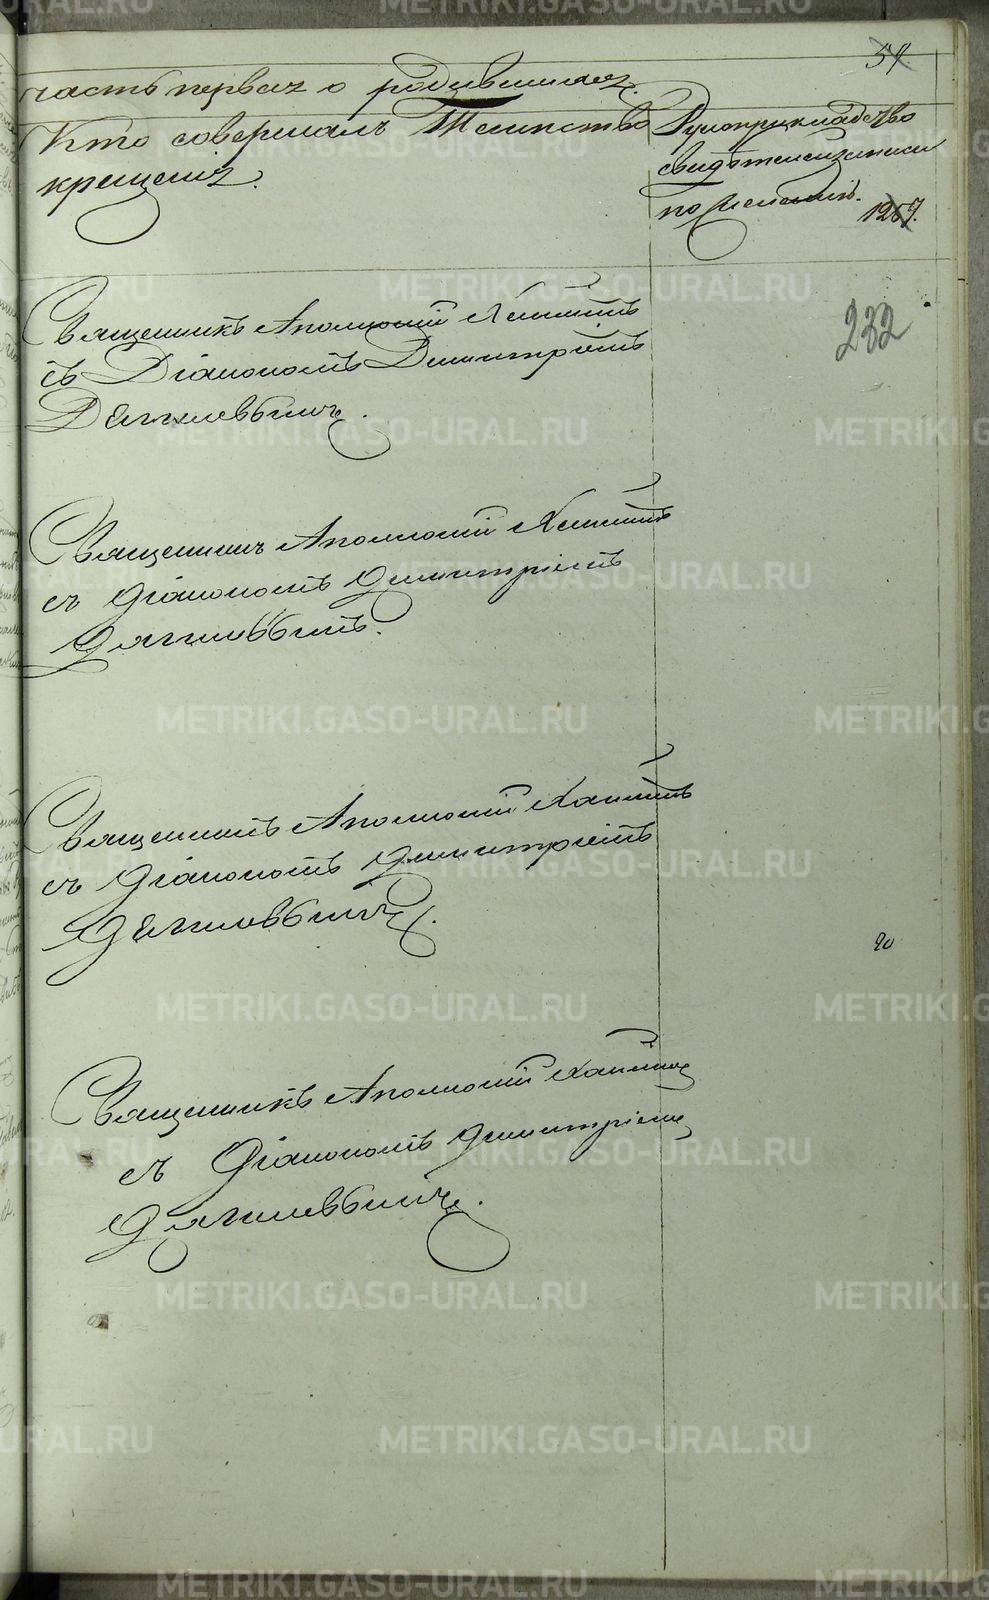 54
часть первая о родившихся.
Кто совершалъ Таинство
крещенія.
Рукоприкладство
свидѣтелей записи
по желанію.
1257.
232
Священникъ Аполлоній
съ Діакономъ Димитріемъ
Дягилевымъ.
Священникъ Аполлоній
съ Діакономъ Димитріемъ
Дягилевымъ.
Священникъ Аполлоній
съ Діакономъ Димитріемъ
Дягилевымъ.
20
Священникъ Аполлоній
съ Діакономъ Димитріемъ
Дягилевымъ.
METRIKI.GASO-URAL.RU